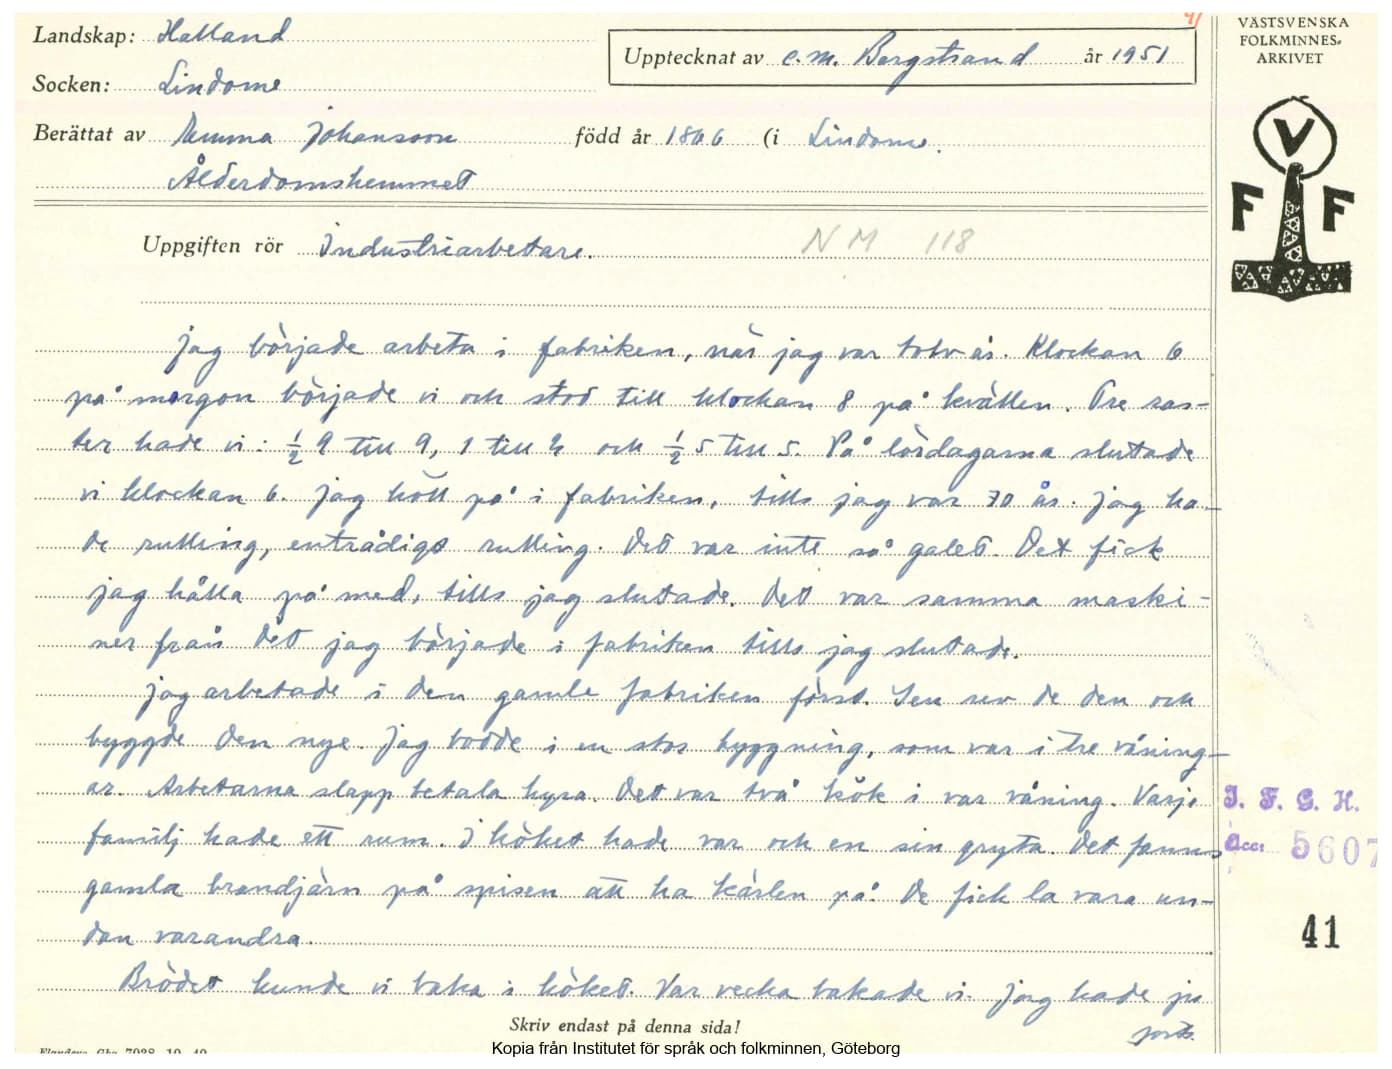 Landskap: Halland
Socken: Lindome
Upptecknat av C. M. Bergstrand år 1951
Berättat av Emma Johansson född år 1866 (i Lindome.
Ålderdomshemmet
VÄSTSVENSKA
FOLKMINNES-
ARKIVET
V
F F
Uppgiften rör Industriarbetare.
NM 118
Jag började arbeta i fabriken, när jag var tolv år. Klockan 6
på morgon började vi och stod till klockan 8 på kvällen. Tre ras-
ter hade vi: ½ 9 till 9, 1 till 2 och ½ 5 till 5. På lördagarna slutade
vi klockan 6. Jag höll på i fabriken, tills jag var 70 år. Jag ha-
de rulling, entrådigt rulling. Det var inte så galet. Det fick
jag hålla på med, tills jag slutade. Det var samma maski-
ner från det jag började i fabriken tills jag slutade.
Jag arbetade i den gamle fabriken först. Sen rev de den och
byggde den nye. Jag bodde i en stor byggning, som var i tre våning-
ar. Arbetarna slapp betala hyra. Det var två kök i var våning. Varje
familj hade ett rum. I köket hade var och en sin gryta. Det fanns
gamla brandjärn på spisen att ha kärlen på. De fick la vara un-
dan varandra.
Brödet kunde vi baka i köket. Var vecka bakade vi. Jag hade ju
forts.
I. F. G. H.
Acc: 5607
41
Skriv endast på denna sida!
Kopia från Institutet för språk och folkminnen, Göteborg